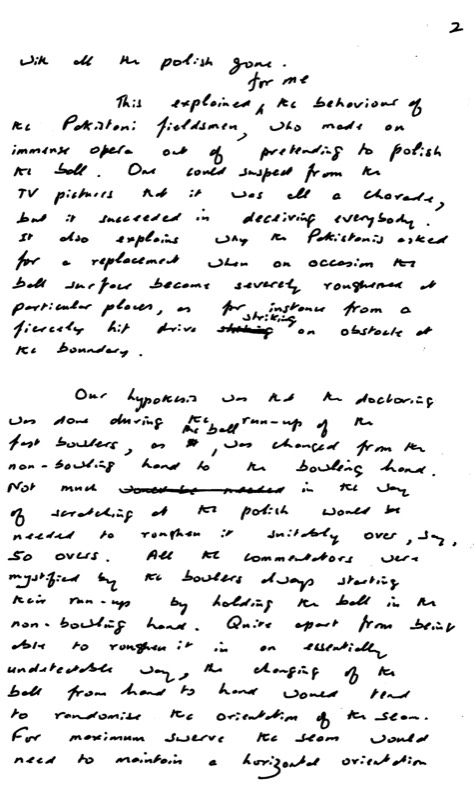 2
with all the polish gone.
for me
This explained, the behaviour of
the Pakistani fieldsmen, who made an
immense opera out of pretending to polish
the ball. One could suspect from the
TV pictures that it was all a charade,
but it succeeded in deceiving everybody.
It also explains why the Pakistanis asked
for a replacement when on occasion the
ball surface became severely roughened at
particular places, as for instance from a
striking
fiercely hit drive on obstacle at
the boundary.
Our hypothesis was that the doctoring
was done during the run-up of the
the ball
fast bowlers, as , was changed from the
non-bowling hand to the bowling hand.
Not much would be needed in the way
of scratching at the polish would be
needed to roughen it suitably over, say,
50 overs. All the commentators were
mystified by the bowlers always starting
their run-up by holding the ball in the
non-bowling hand. Quite apart from being
able to roughen it in an essentially
undetectable way, the changing of the
ball from hand to hand would tend
to randomise the orientation of the seam.
For maximum swerve the seam would
need to maintain a horizontal orientation